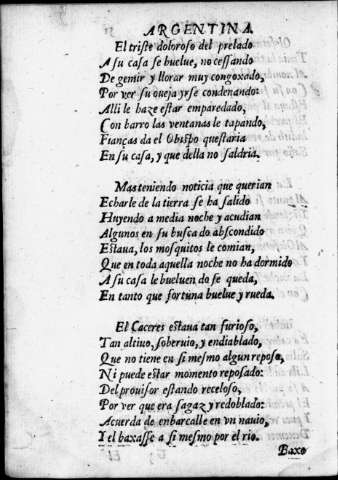 ARGENTINA.
El triste doloroso del prelado
A su casa se buelue, no cessando
De gemir y llorar muy congoxado,
Por ver su oueja yrse condenando:
Alli le haze estar emparedado,
Con barro las ventanas le tapando,
Fianças da el Obispo questaria
En su casa, y que della no saldria.
Mas teniendo noticia que querian
Echarle de la tierra se ha salido
Huyendo a media noche y acudian
Algunos en su busca do abscondido
Estaua, los mosquitos le comian,
Que en toda aquella noche no ha dormido
A su casa le bueluen do se queda,
En tanto que fortuna buelue y rueda.
El Caceres estaua tan furioso,
Tan altiuo, soberuio, y endiablado,
Que no tiene en si mesmo algun reposo,
Ni puede estar momento reposado:
Del prouisor estando receloso,
Por ver que era sagaz y redoblado:
Acuerda de embarcalle en vn nauio,
Y el baxasse a si mesmo por el rio.
Baxo